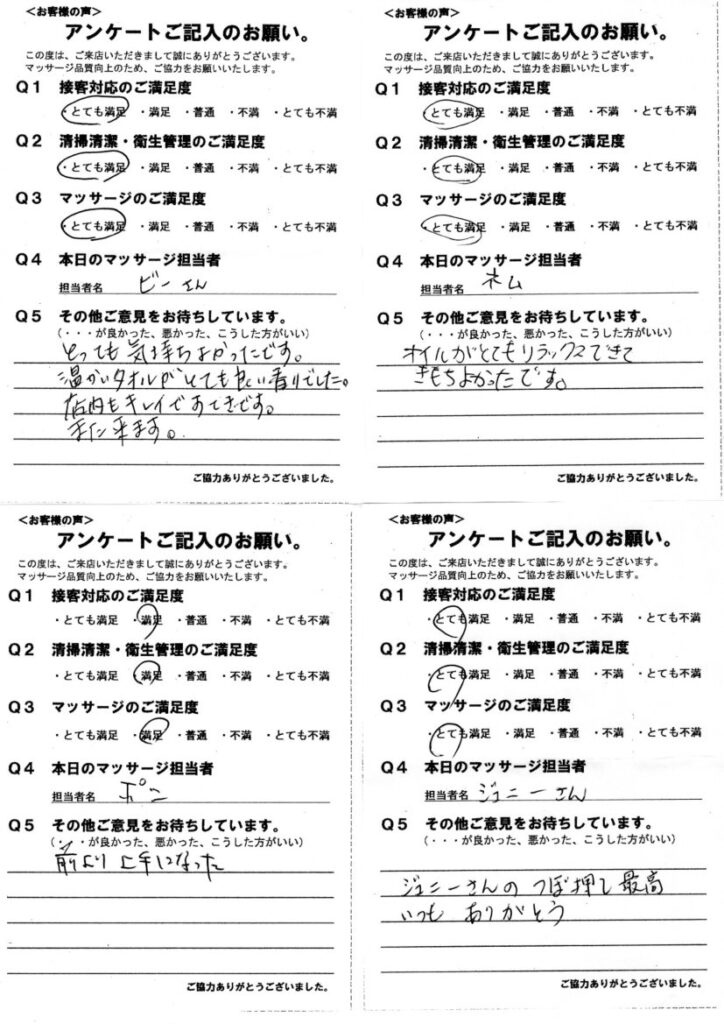 <お客様の声>
アンケートご記入のお願い。
この度は、ご来店いただきまして誠にありがとうございます。
マッサージ品質向上のため、ご協力をお願いいたします。
Q1 接客対応のご満足度
・とても満足 ・満足 ・普通 ・不満 ・とても不満
Q2 清掃清潔・衛生管理のご満足度
・とても満足 ・満足 ・普通 ・不満 ・とても不満
Q3 マッサージのご満足度
・とても満足 ・満足 ・普通 ・不満 ・とても不満
Q4 本日のマッサージ担当者
担当者名 ビーさん
Q5 その他ご意見をお待ちしています。
(・・・が良かった、悪かった、こうした方がいい)
とっても気持ちよかったです。
温かいタオルがとても良い香りでした。
店内もキレイですてきです。
また来ます。
ご協力ありがとうございました。
<お客様の声>
アンケートご記入のお願い。
この度は、ご来店いただきまして誠にありがとうございます。
マッサージ品質向上のため、ご協力をお願いいたします。
Q1 接客対応のご満足度
・とても満足 ・満足 ・普通 ・不満 ・とても不満
Q2 清掃清潔・衛生管理のご満足度
・とても満足 ・満足 ・普通 ・不満 ・とても不満
Q3 マッサージのご満足度
・とても満足 ・満足 ・普通 ・不満 ・とても不満
Q4 本日のマッサージ担当者
担当者名 ネム
Q5 その他ご意見をお待ちしています。
(・・・が良かった、悪かった、こうした方がいい)
オイルがとてもリラックスできて
きもちよかったです。
ご協力ありがとうございました。
<お客様の声>
アンケートご記入のお願い。
この度は、ご来店いただきまして誠にありがとうございます。
マッサージ品質向上のため、ご協力をお願いいたします。
Q1 接客対応のご満足度
・とても満足 ・満足 ・普通 ・不満 ・とても不満
Q2 清掃清潔・衛生管理のご満足度
・とても満足 ・満足 ・普通 ・不満 ・とても不満
Q3 マッサージのご満足度
・とても満足 ・満足 ・普通 ・不満 ・とても不満
Q4 本日のマッサージ担当者
担当者名 ポン
Q5 その他ご意見をお待ちしています。
(・・・が良かった、悪かった、こうした方がいい)
前より上手になった
ご協力ありがとうございました。
<お客様の声>
アンケートご記入のお願い。
この度は、ご来店いただきまして誠にありがとうございます。
マッサージ品質向上のため、ご協力をお願いいたします。
Q1 接客対応のご満足度
・とても満足 ・満足 ・普通 ・不満 ・とても不満
Q2 清掃清潔・衛生管理のご満足度
・とても満足 ・満足 ・普通 ・不満 ・とても不満
Q3 マッサージのご満足度
・とても満足 ・満足 ・普通 ・不満 ・とても不満
Q4 本日のマッサージ担当者
担当者名 ジェニーさん
Q5 その他ご意見をお待ちしています。
(・・・が良かった、悪かった、こうした方がいい)
ジェニーさんのつぼ押し最高
いつもありがとう
ご協力ありがとうございました。